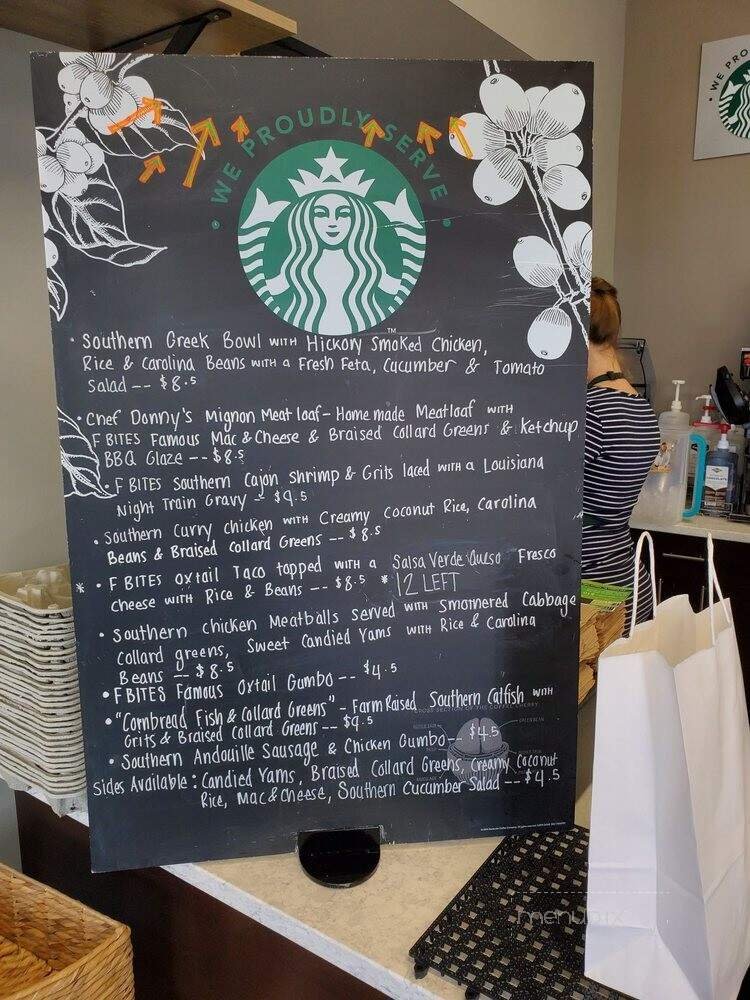 WE PROUDLY SERVE
WE PRO
TM
• Southern Greek Bowl with Hickory Smoked Chicken,
Rice & Carolina Beans with a Fresh Feta, Cucumber & Tomato
Salad -- $8.5
• Chef Donny's Mignon Meat loaf - Home made Meatloaf with
F BITES Famous Mac & Cheese & Braised Collard Greens & Ketchup
BBQ Glaze -- $8.5
• F BITES Southern Cajon Shrimp & Grits laced with a Louisiana
Night Train Gravy -- $9.5
• Southern Curry chicken with Creamy Coconut Rice, Carolina
Beans & Braised Collard Greens -- $8.5
* • F BITES Oxtail Taco topped with a Salsa Verde Queso Fresco
Cheese with Rice & Beans -- $8.5 * 12 LEFT
• Southern chicken Meatballs Served with Smothered Cabbage
Collard greens, Sweet Candied Yams with Rice & Carolina
Beans -- $8.5
• F BITES Famous Oxtail Gumbo -- $4.5
• "Cornbread Fish & Collard Greens" - Farm Raised Southern Catfish with
Grits & Braised Collard Greens -- $9.5
• Southern Andouille Sausage & Chicken Gumbo -- $4.5
Sides Available : Candied Yams, Braised Collard Greens, Creamy Coconut
Rice, Mac & Cheese, Southern Cucumber Salad -- $4.5
menupix